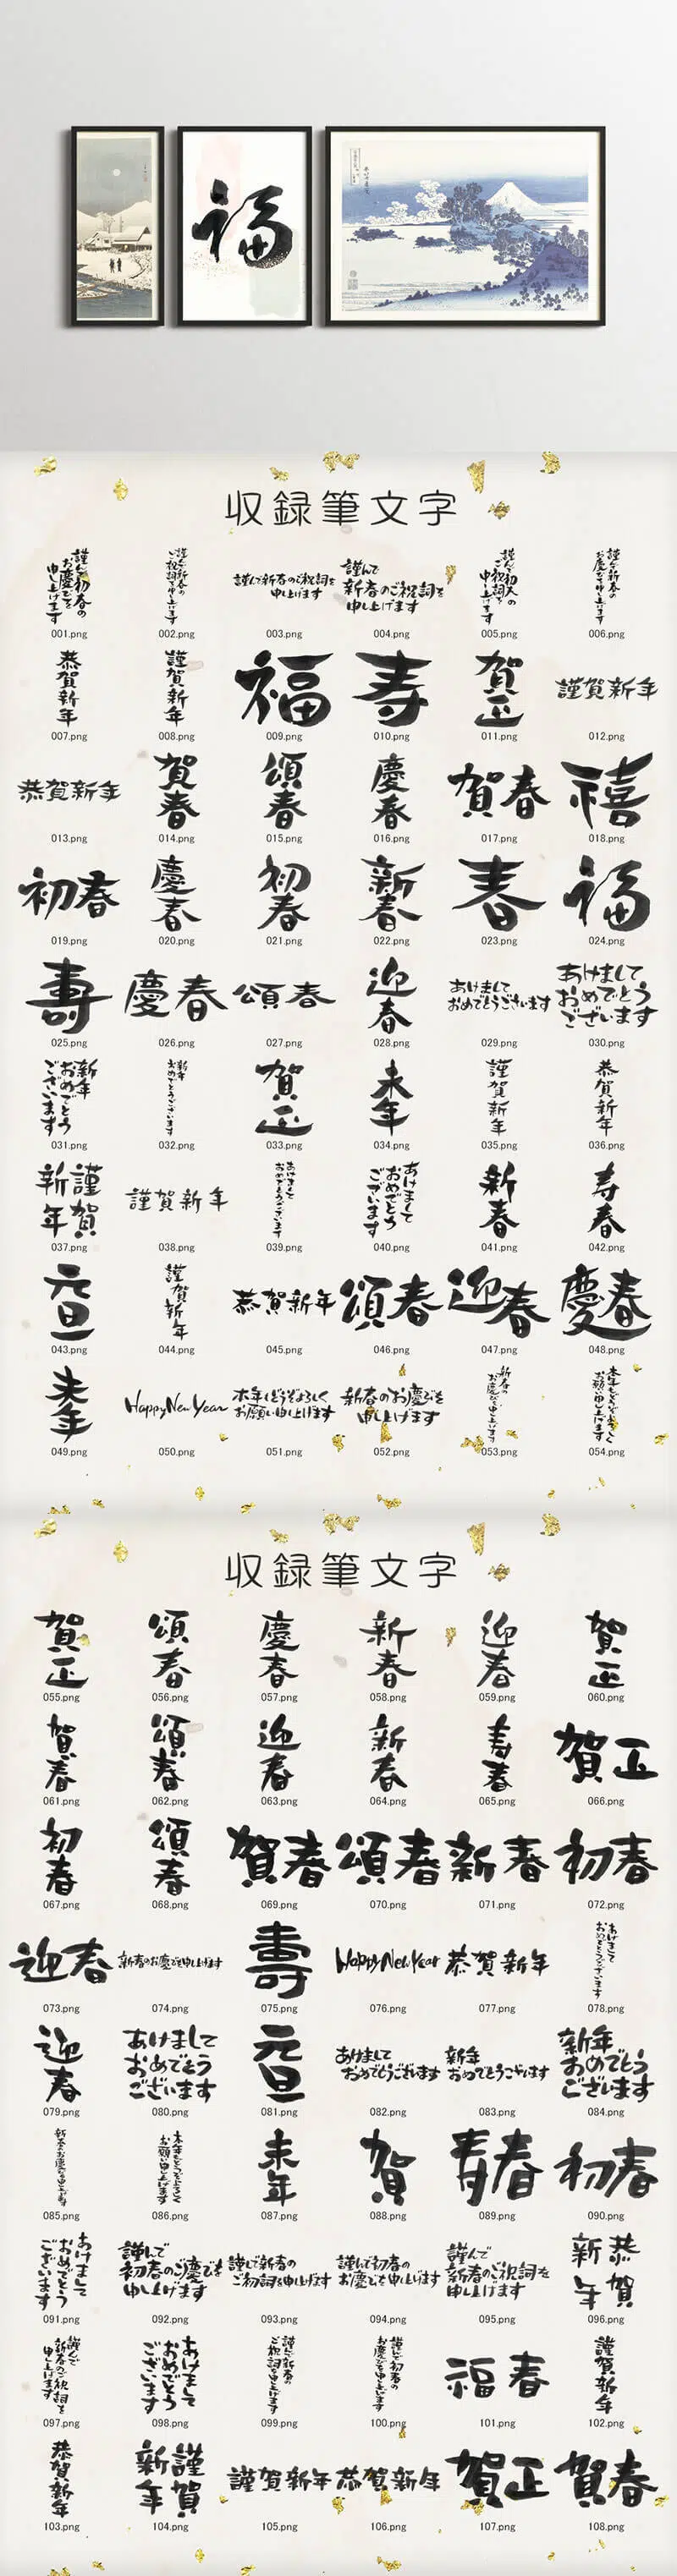 福
収録筆文字
謹んで初春の
お慶びを
申し上げます
001.png
謹んで新春の
ご祝詞を申し上げます
002.png
謹んで新春のご祝詞を
申し上げます
003.png
謹んで
新春のご祝詞を
申し上げます
004.png
謹んで初春の
ご祝詞を
申し上げます
005.png
謹んで新春の
お慶びを申し上げます
006.png
恭賀新年
007.png
謹賀新年
008.png
福
009.png
寿
010.png
賀正
011.png
謹賀新年
012.png
恭賀新年
013.png
賀春
014.png
頌春
015.png
慶春
016.png
賀春
017.png
禧
018.png
初春
019.png
慶春
020.png
初春
021.png
新春
022.png
春
023.png
福
024.png
壽
025.png
慶春
026.png
頌春
027.png
迎春
028.png
あけまして
おめでとうございます
029.png
あけまして
おめでとう
ございます
030.png
新年
おめでとう
ございます
031.png
新年
おめでとうございます
032.png
賀正
033.png
未年
034.png
謹賀新年
035.png
恭賀新年
036.png
謹賀
新年
037.png
謹賀新年
038.png
あけまして
おめでとうございます
039.png
あけまして
おめでとう
ございます
040.png
新春
041.png
寿春
042.png
元旦
043.png
謹賀新年
044.png
恭賀新年
045.png
頌春
046.png
迎春
047.png
慶春
048.png
未年
049.png
Happy New Year
050.png
本年もどうぞよろしく
お願い申し上げます
051.png
新春のお慶びを
申し上げます
052.png
新春の
お慶びを申し上げます
053.png
本年もどうぞよろしく
お願い申し上げます
054.png
収録筆文字
賀正
055.png
頌春
056.png
慶春
057.png
新春
058.png
迎春
059.png
賀正
060.png
賀春
061.png
頌春
062.png
迎春
063.png
新春
064.png
寿春
065.png
賀正
066.png
初春
067.png
頌春
068.png
賀春
069.png
頌春
070.png
新春
071.png
初春
072.png
迎春
073.png
新春のお慶びを申し上げます
074.png
壽
075.png
Happy New Year
076.png
恭賀新年
077.png
あけまして
おめでとうございます
078.png
迎春
079.png
あけまして
おめでとう
ございます
080.png
元旦
081.png
あけまして
おめでとうございます
082.png
新年
おめでとうございます
083.png
新年
おめでとう
ございます
084.png
新春のお慶びを申し上げます
085.png
本年もどうぞよろしく
お願い申し上げます
086.png
未年
087.png
賀
088.png
青春
089.png
初春
090.png
あけまして
おめでとう
ございます
091.png
謹んで
初春のお慶びを
申し上げます
092.png
謹んで新春の
ご祝詞を申し上げます
093.png
謹んで初春の
お慶びを申し上げます
094.png
謹んで
新春のご祝詞を
申し上げます
095.png
恭賀
新年
096.png
謹んで
新春のご祝詞を
申し上げます
097.png
あけまして
おめでとう
ございます
098.png
謹んで新春の
ご祝詞を申し上げます
099.png
謹んで初春の
お慶びを申し上げます
100.png
福春
101.png
謹賀新年
102.png
恭賀新年
103.png
謹賀
新年
104.png
謹賀新年
105.png
恭賀新年
106.png
賀正
107.png
賀春
108.png